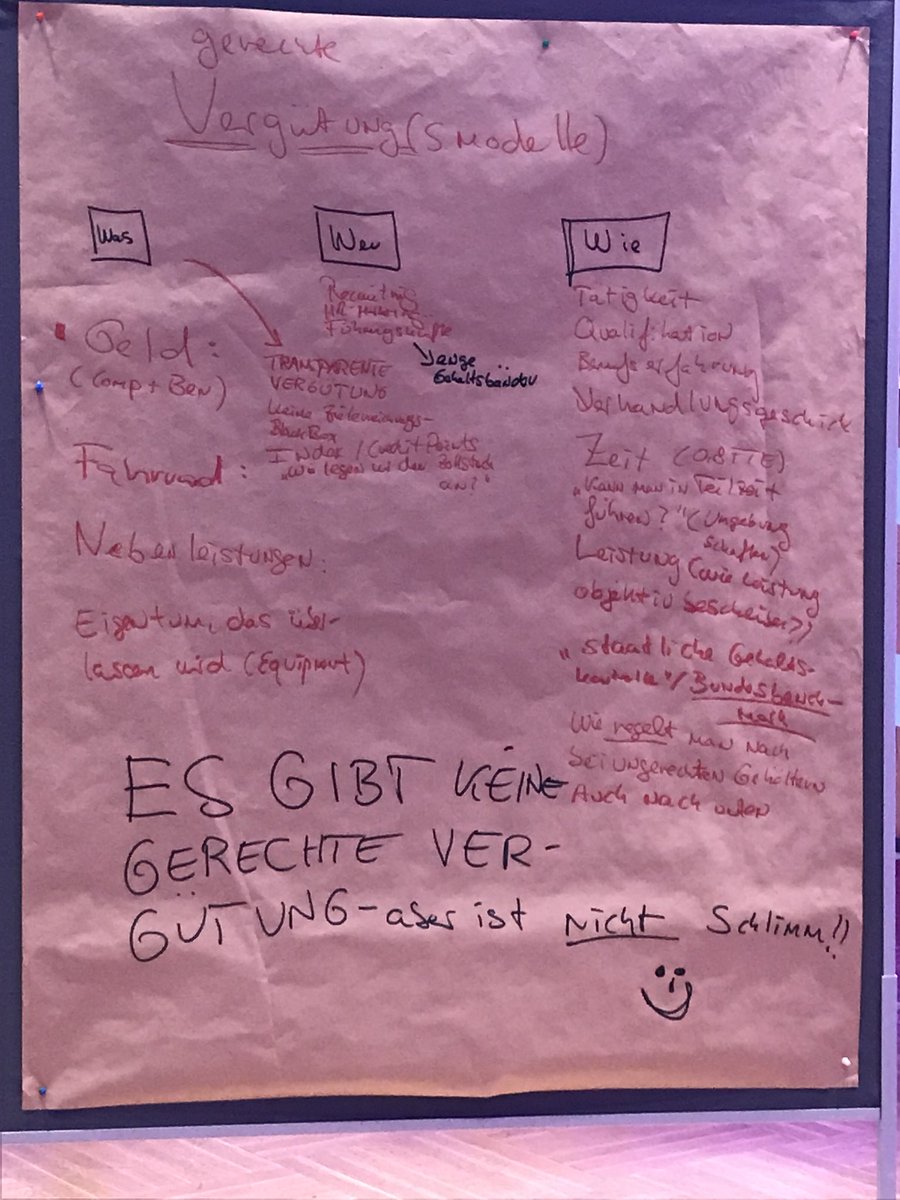 gerechte
Vergütung(smodelle)
Was
Geld:
(Comp + Ben)
Fahrrad:
Nebenleistungen:
Eigentum, das über-
lassen wird (Equipment)
Wer
Recruiting
Führungskräfte
Gehaltsbänder
TRANSPARENTE
VERGÜTUNG
keine
BlackBox
Index / Credit Points
"Wo legen wir den Zollstock
an?"
Wie
Tätigkeit
Qualifikation
Berufserfahrung
Verhandlungsgeschick
Zeit
"Kann man in Teilzeit
führen?" (Umgebung
schaffen)
Leistung (wie Leistung
objektiv
"staatliche Gehalts-
kontrolle"/Bundesbench-
mark
Wie regelt man nach
bei ungerechten Gehältern
Auch nach unten
ES GIBT KEINE
GERECHTE VER-
GÜTUNG - aber ist nicht schlimm!!